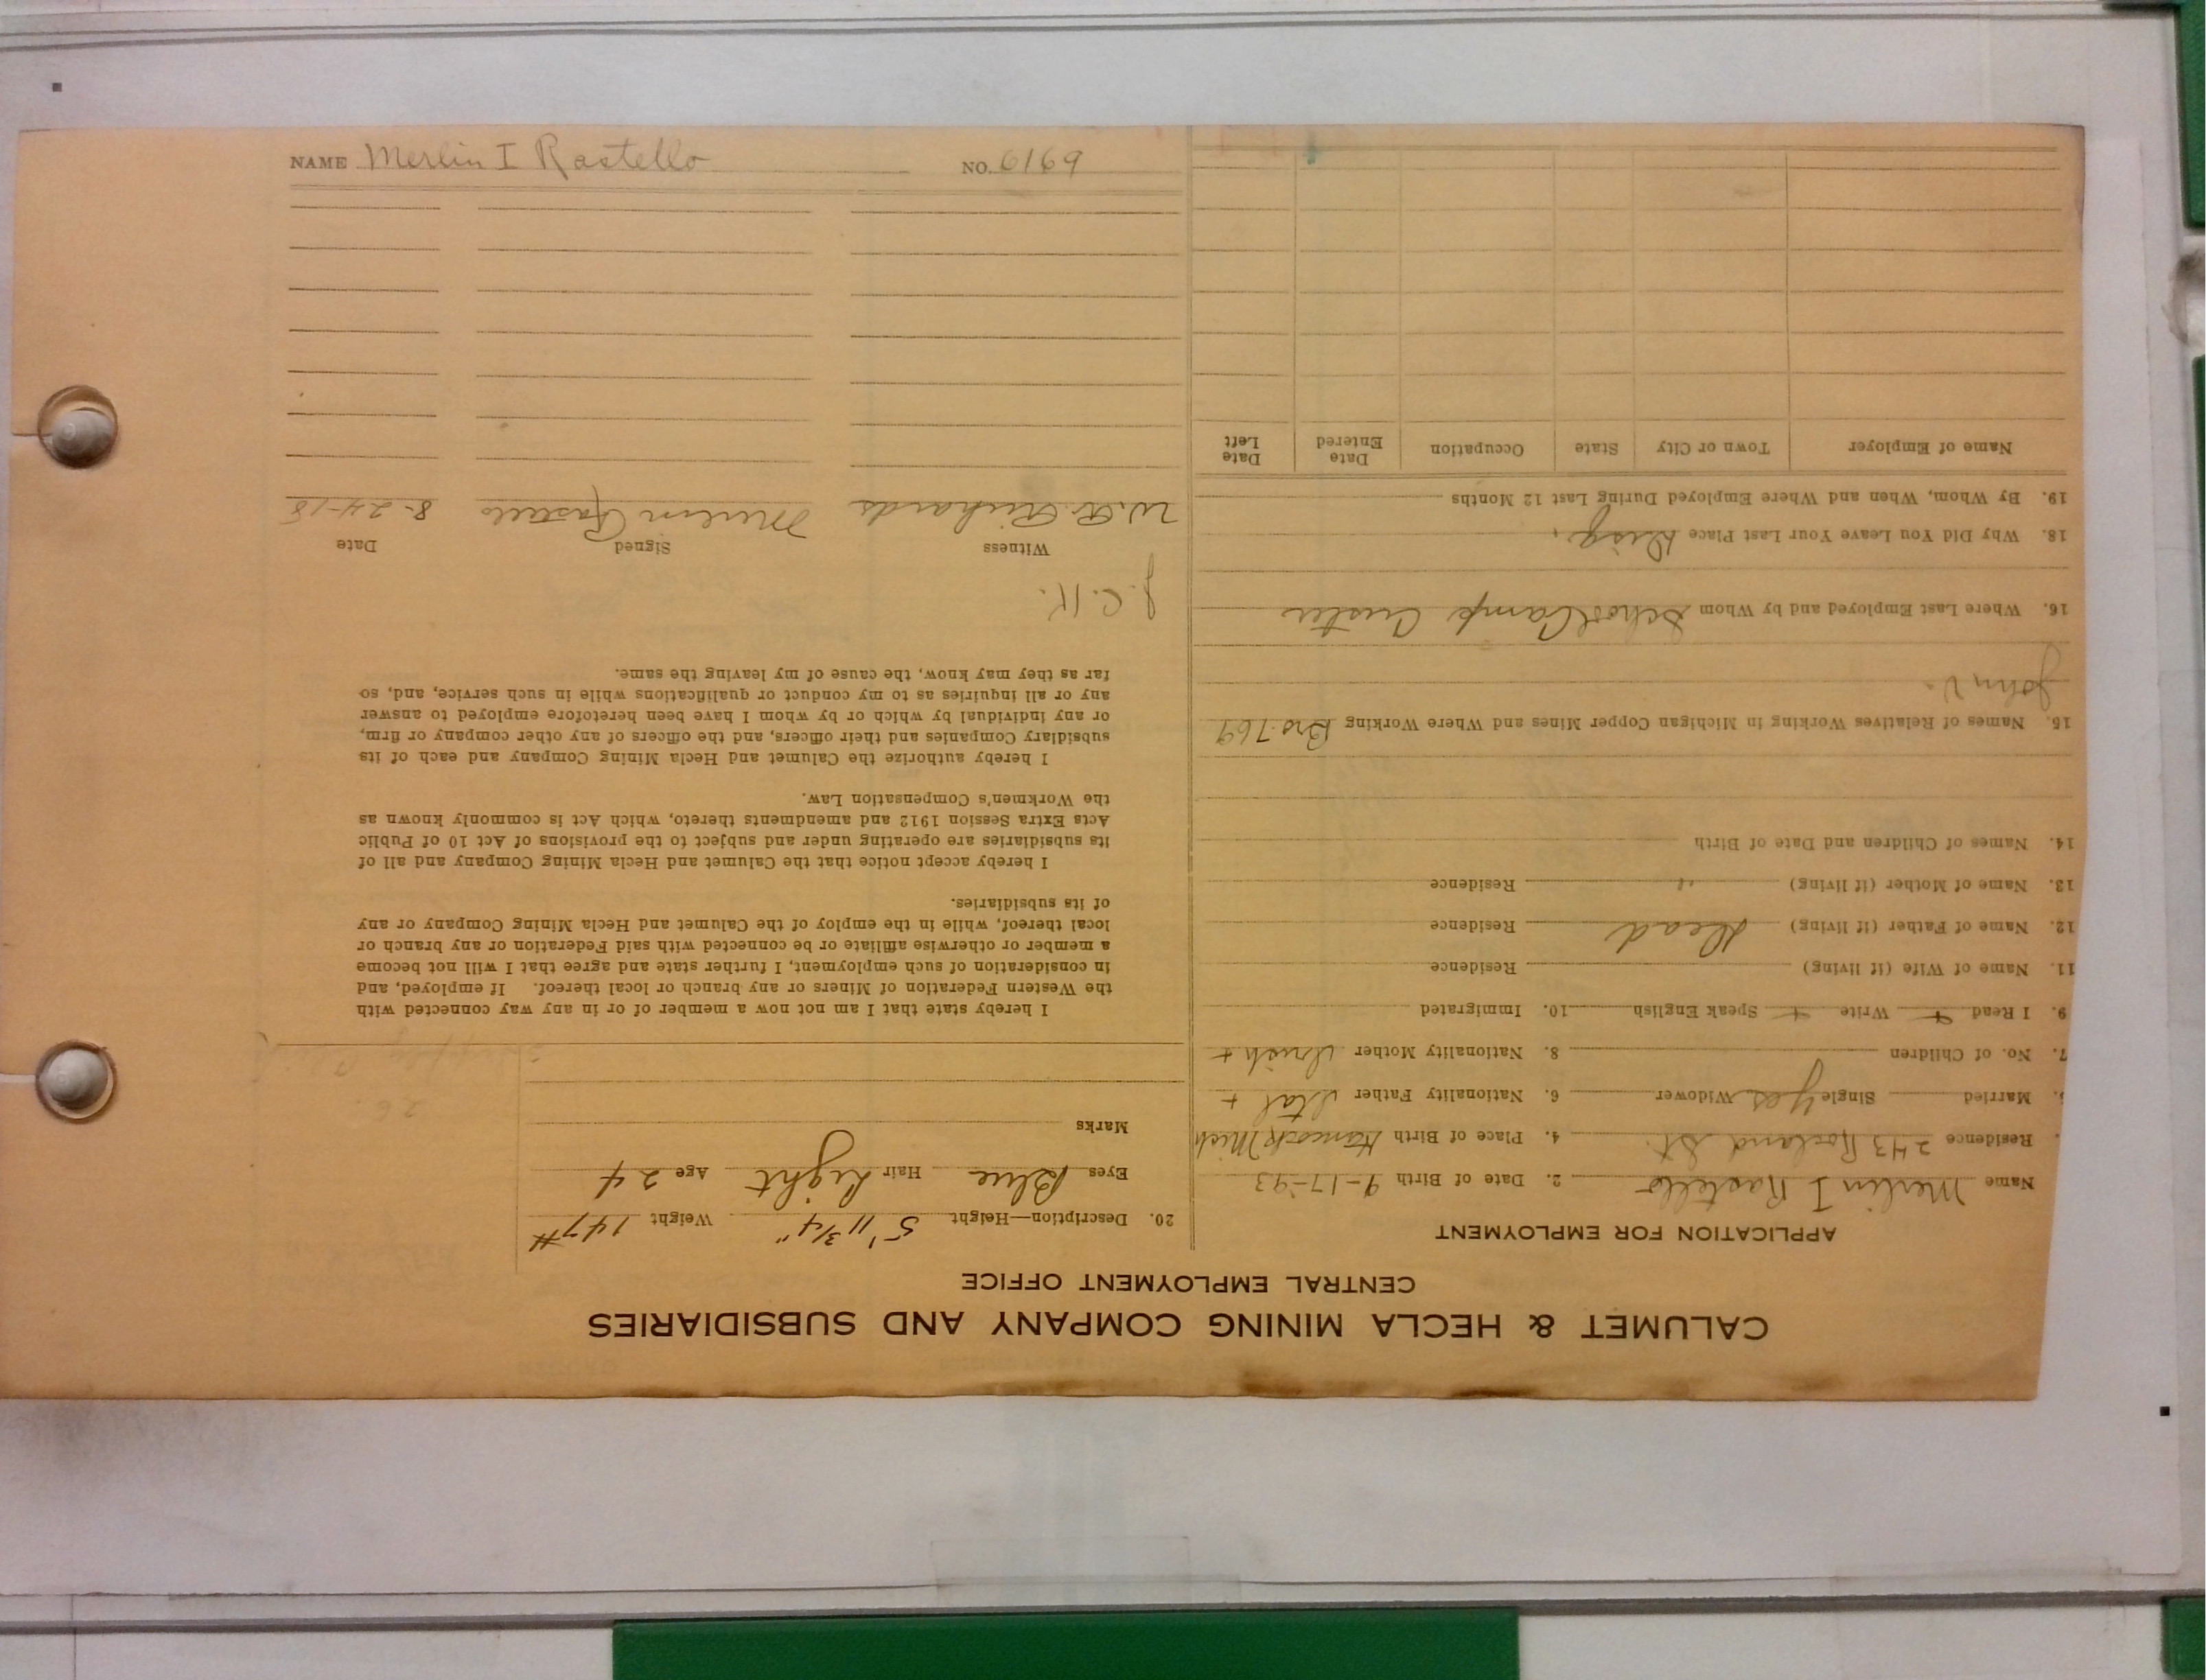 NAME Merlin I Rastello NO. 6169
CALUMET & HECLA MINING COMPANY AND SUBSIDIARIES
CENTRAL EMPLOYMENT OFFICE
APPLICATION FOR EMPLOYMENT
Name Merlin I Rastello 2. Date of Birth 9-17-93
Residence 243 Rockland St. 4. Place of Birth Hancock Mich
Married Single yes Widower 6. Nationality Father Ital +
7. No. of Children 8. Nationality Mother Irish +
9. I Read + Write + Speak English 10. Immigrated
11. Name of Wife (if living) Residence
12. Name of Father (if living) Dead Residence
13. Name of Mother (if living) " Residence
14. Names of Children and Date of Birth
15. Names of Relatives Working in Michigan Copper Mines and Where Working Bro. 769
John V.
16. Where Last Employed and by Whom School Camp Custer
18. Why Did You Leave Your Last Place Disg.
19. By Whom, When and Where Employed During Last 12 Months
Name of Employer Town or City State Occupation Date Entered Date Left
20. Description—Height 5' 11 3/4" Weight 147#
Eyes Blue Hair Light Age 24
Marks
26
I hereby state that I am not now a member of or in any way connected with
the Western Federation of Miners or any branch or local thereof. If employed, and
in consideration of such employment, I further state and agree that I will not become
a member or otherwise affiliate or be connected with said Federation or any branch or
local thereof, while in the employ of the Calumet and Hecla Mining Company or any
of its subsidiaries.
I hereby accept notice that the Calumet and Hecla Mining Company and all of
its subsidiaries are operating under and subject to the provisions of Act 10 of Public
Acts Extra Session 1912 and amendments thereto, which Act is commonly known as
the Workmen's Compensation Law.
I hereby authorize the Calumet and Hecla Mining Company and each of its
subsidiary Companies and their officers, and the officers of any other company or firm,
or any individual by which or by whom I have been heretofore employed to answer
any or all inquiries as to my conduct or qualifications while in such service, and, so
far as they may know, the cause of my leaving the same.
J.C.K.
Witness Signed Date
W.R. Richards Merlin Rastello 8-24-18